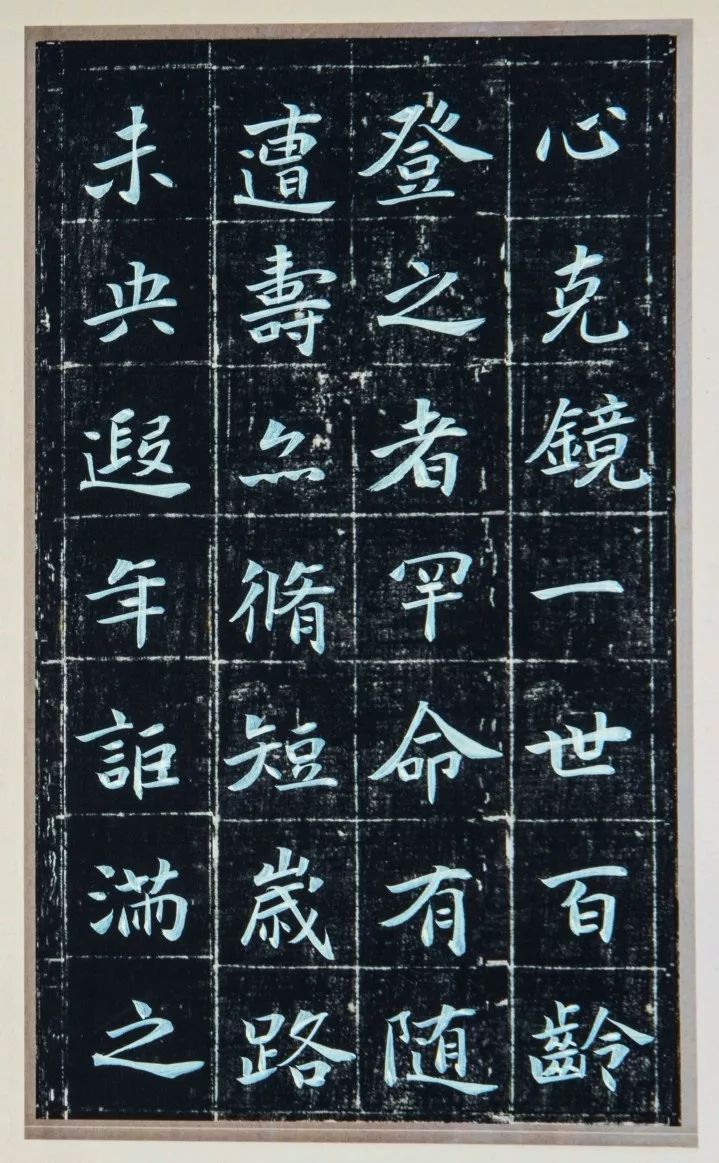 心克鏡一世百齡
登之者罕命有隨
遭壽亦脩短歲路
未央遐年詎滿之